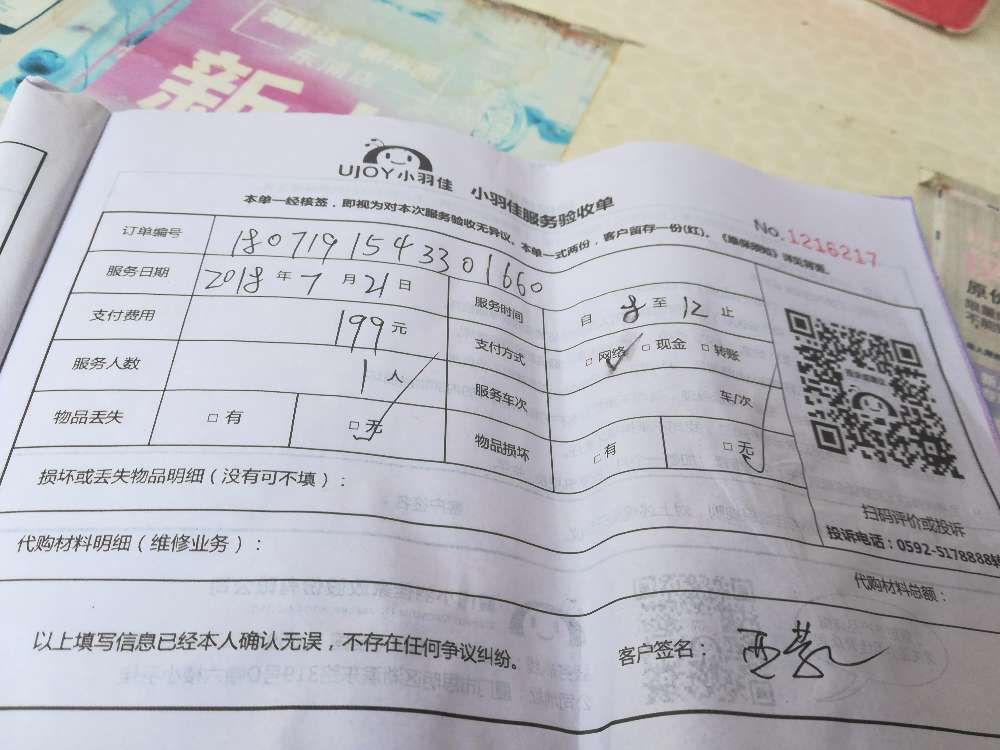 新
UJOY小羽佳 小羽佳服务验收单
本单一经核签，即视为对本次服务验收无异议。本单一式两份，客户留存一份(红)。《维保须知》详见背面。
No.1216217
订单编号 1807191543301660
服务日期 2018 年 7 月 21 日 服务时间 自 8 至 12 止
支付费用 199 元 支付方式 □ 网络 □ 现金 □ 转账
服务人数 1 人 服务车次 车/次
物品丢失 □ 有 □ 无 物品损坏 □ 有 □ 无
损坏或丢失物品明细（没有可不填）：
扫码评价或投诉
投诉电话：0592-5178888转
代购材料明细（维修业务）： 代购材料总额：
以上填写信息已经本人确认无误，不存在任何争议纠纷。 客户签名：